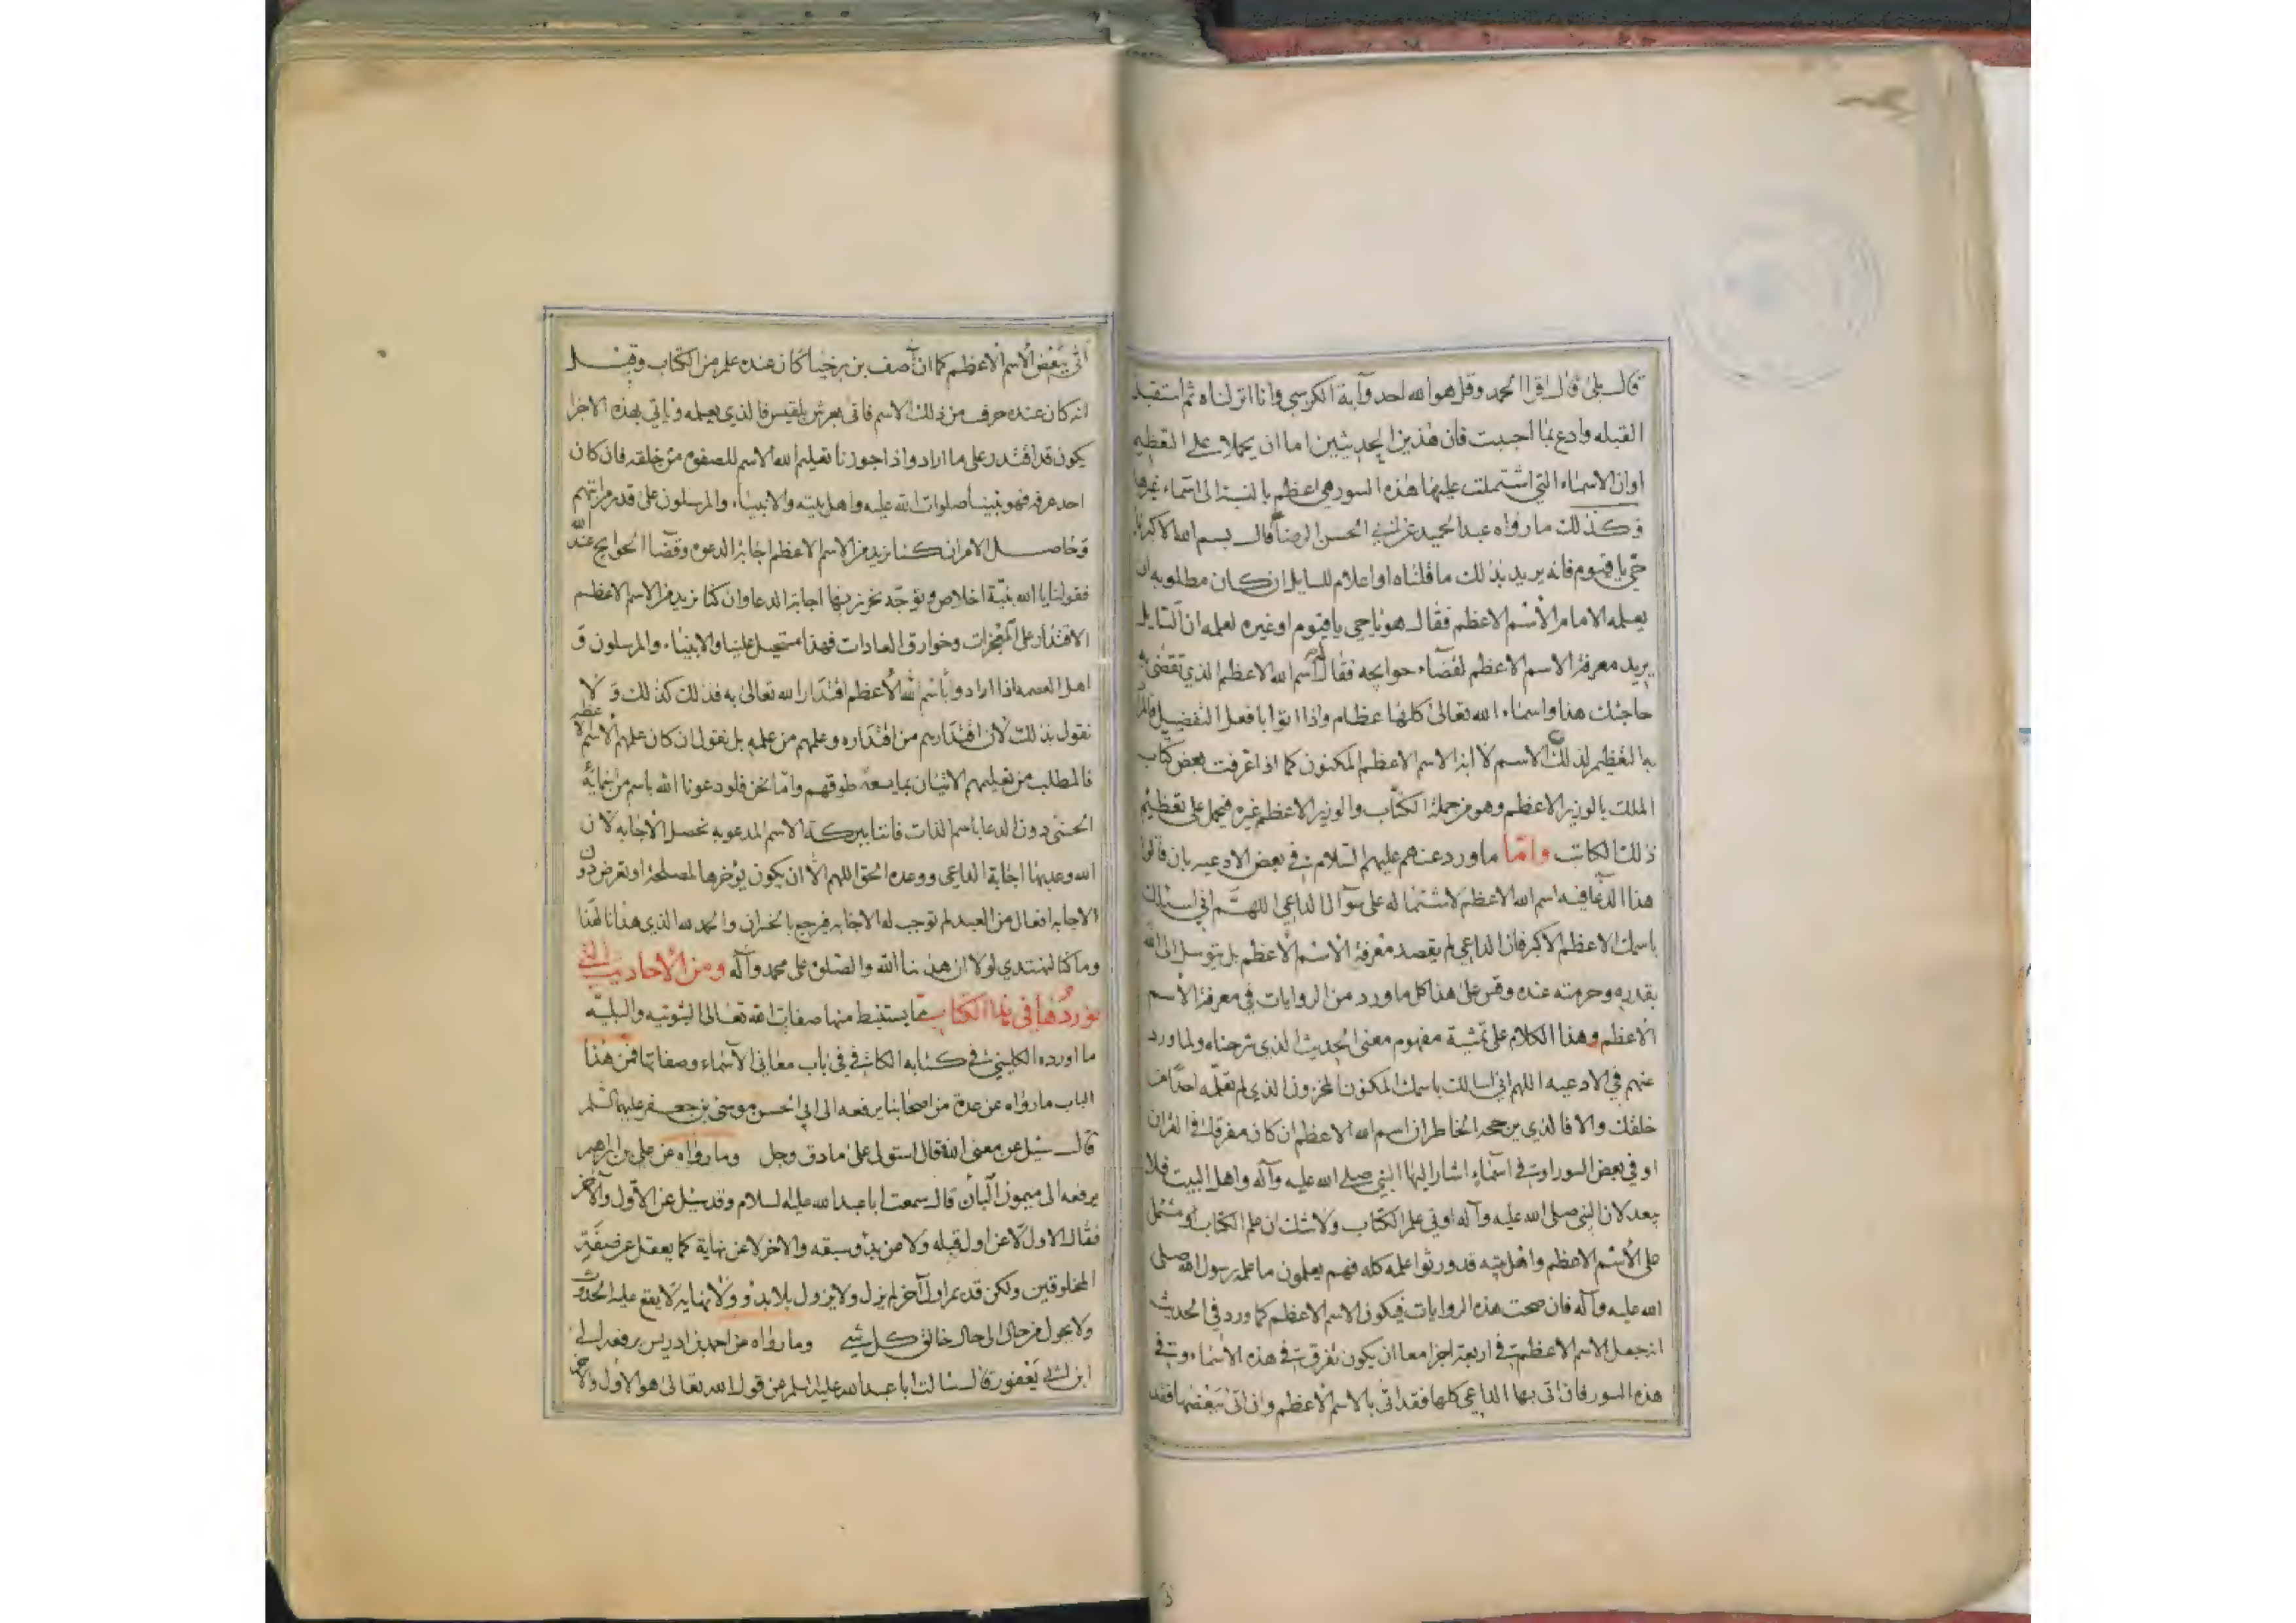 قال بلى قال اقرا الحمد وقل هو الله احد وآية الكرسي وانا انزلناه ثم استقبل
القبله وادع بما احببت فان هذين الحديثين اما ان يحملا على التعظيم
اوان الاسماء التي اشتملت عليها هذه السور هي اعظم بالنسبة الى اسماء غيرها
وكذلك ما رواه عبد الحميد عن ابي الحسن الرضا قال بسم الله الاكبر يا
حي يا قيوم فانه يريد بذلك ما قلناه او اعلام للسايل ان كان مطلوبه ان
يعلمه الامام الاسم الاعظم فقال هو يا حي يا قيوم او غيره لعلمه ان السايل
يريد معرفة الاسم الاعظم لقضاء حوايجه فقال اسم الله الاعظم الذي تقضى به
حاجتك هنا واسماء الله تعالى كلها عظام واذا اتوا بافعل التفضيل فالمراد
بها التعظيم لذلك الاسم لا انه الاسم الاعظم المكنون كما اذا عرفت بعض كتاب
الملك بالوزير الاعظم وهو من جملة الكتاب والوزير الاعظم غيره فيحمل على تعظيم
ذلك الكاتب واما ما ورد عنهم عليهم السلام في بعض الادعيه بان قالوا
هذا الدعا فيه اسم الله الاعظم لاشتماله على سؤال الداعي اللهم اني اسئلك
باسمك الاعظم الاكبر فان الداعي لم يقصد معرفة الاسم الاعظم بل يتوسل الى الله
بقدره وحرمته عنده وقس على هذا كل ما ورد من الروايات في معرفة الاسم
الاعظم وهذا الكلام على تمشية مفهوم معنى الحديث الذي شرحناه ولما ورد
عنهم في الادعيه اللهم اني اسالك باسمك المكنون المخزون الذي لم تعلمه احدا من
خلقك والا فالذي يرجحه الخاطر ان اسم الله الاعظم ان كان مفرقا في القران
او في بعض السور او في اسماء اشار اليها النبي صلى الله عليه وآله واهل البيت فلا
بعد لان النبي صلى الله عليه وآله اوتي علم الكتاب ولا شك ان علم الكتاب مشتمل
على الاسم الاعظم واهل بيته قد ورثوا علمه كله فهم يعلمون ما علمه رسول الله صلى
الله عليه وآله فان صحت هذه الروايات فيكون الاسم الاعظم كما ورد في الحديث
انه جعل الاسم الاعظم في اربعة اجزا معا ان يكون تفرق في هذه الاسماء وفي
هذه السور فان اتى بها الداعي كلها فقد اتى بالاسم الاعظم وان اتى ببعضها فقد
اتى ببعض الاسم الاعظم كما ان آصف بن برخيا كان عنده علم من الكتاب وقيل
انه كان عنده حرف من ذلك الاسم فاتى بعرش بلقيس فالذي يعلمه وياتي بهذه الاجزا
يكون قد اقتدر على ما اراد واذا جوزنا تعليم الله الاسم للصفوه من خلقه فان كان
احد عرفه فهو نبينا صلوات الله عليه واهل بيته والانبياء والمرسلون على قدر مراتبهم
وحاصل الامر ان كنا نريد من الاسم الاعظم اجابة الدعوه وقضا الحوايج عند الله
فقولنا يا الله بنية اخلاص وتوجه نحرز بها اجابة الدعا وان كنا نريد من الاسم الاعظم
الاقتدار على المعجزات وخوارق العادات فهذا مستحيل علينا والانبياء والمرسلون و
اهل العصمه اذا ارادوا باسم الله الاعظم اقتدار الله تعالى به فذلك كذلك ولا
نقول بذلك لان اقتدارهم من اقتداره وعلمهم من علمه بل نقول ان كان علمهم الاسم الاعظم
فالمطلب من تعليمهم الاتيان بما يسعه طوقهم واما نحن فلو دعونا الله باسم من اسمايه
الحسنى دون الدعا باسم الذات فاننا ببركة الاسم المدعو به تحصل الاجابه لان
الله وعد بها اجابة الداعي ووعده الحق اللهم الا ان يكون يؤخرها لمصلحة او تعرض دون
الاجابه افعال من العبد لم توجب له الاجابه فيرجع بالخسران والحمد لله الذي هدانا لهذا
وما كنا لنهتدي لولا ان هدانا الله والصلوة على محمد وآله ومن الاحاديث التي
نوردها في هذا الكتاب مما يستنبط منها صفات الله تعالى الثبوتيه والسلبيه
ما اورده الكليني في كتابه الكافي في باب معاني الاسماء وصفاتها فمن هذا
الباب ما رواه عن عدة من اصحابنا يرفعه الى ابي الحسن موسى بن جعفر عليهما السلم
قال سئل عن معنى الله فقال استولى على ما دق وجل وما رواه عن علي بن ابراهيم
يرفعه الى ميمون البان قال سمعت ابا عبد الله عليه السلام وقد سئل عن الاول والآخر
فقال الاول لا عن اول قبله ولا عن بدؤ سبقه والاخر لا عن نهاية كما يعقل عن صفة
المخلوقين ولكن قديم اول آخر لم يزل ولا يزول بلا بدؤ ولا نهايه لا يقع عليه الحدث
ولا يحول من حال الى حال خالق كل شيء وما رواه عن احمد بن ادريس يرفعه الى
ابن ابي يعفور قال سالت ابا عبد الله عليه السلم عن قول الله تعالى هو الاول والاخر